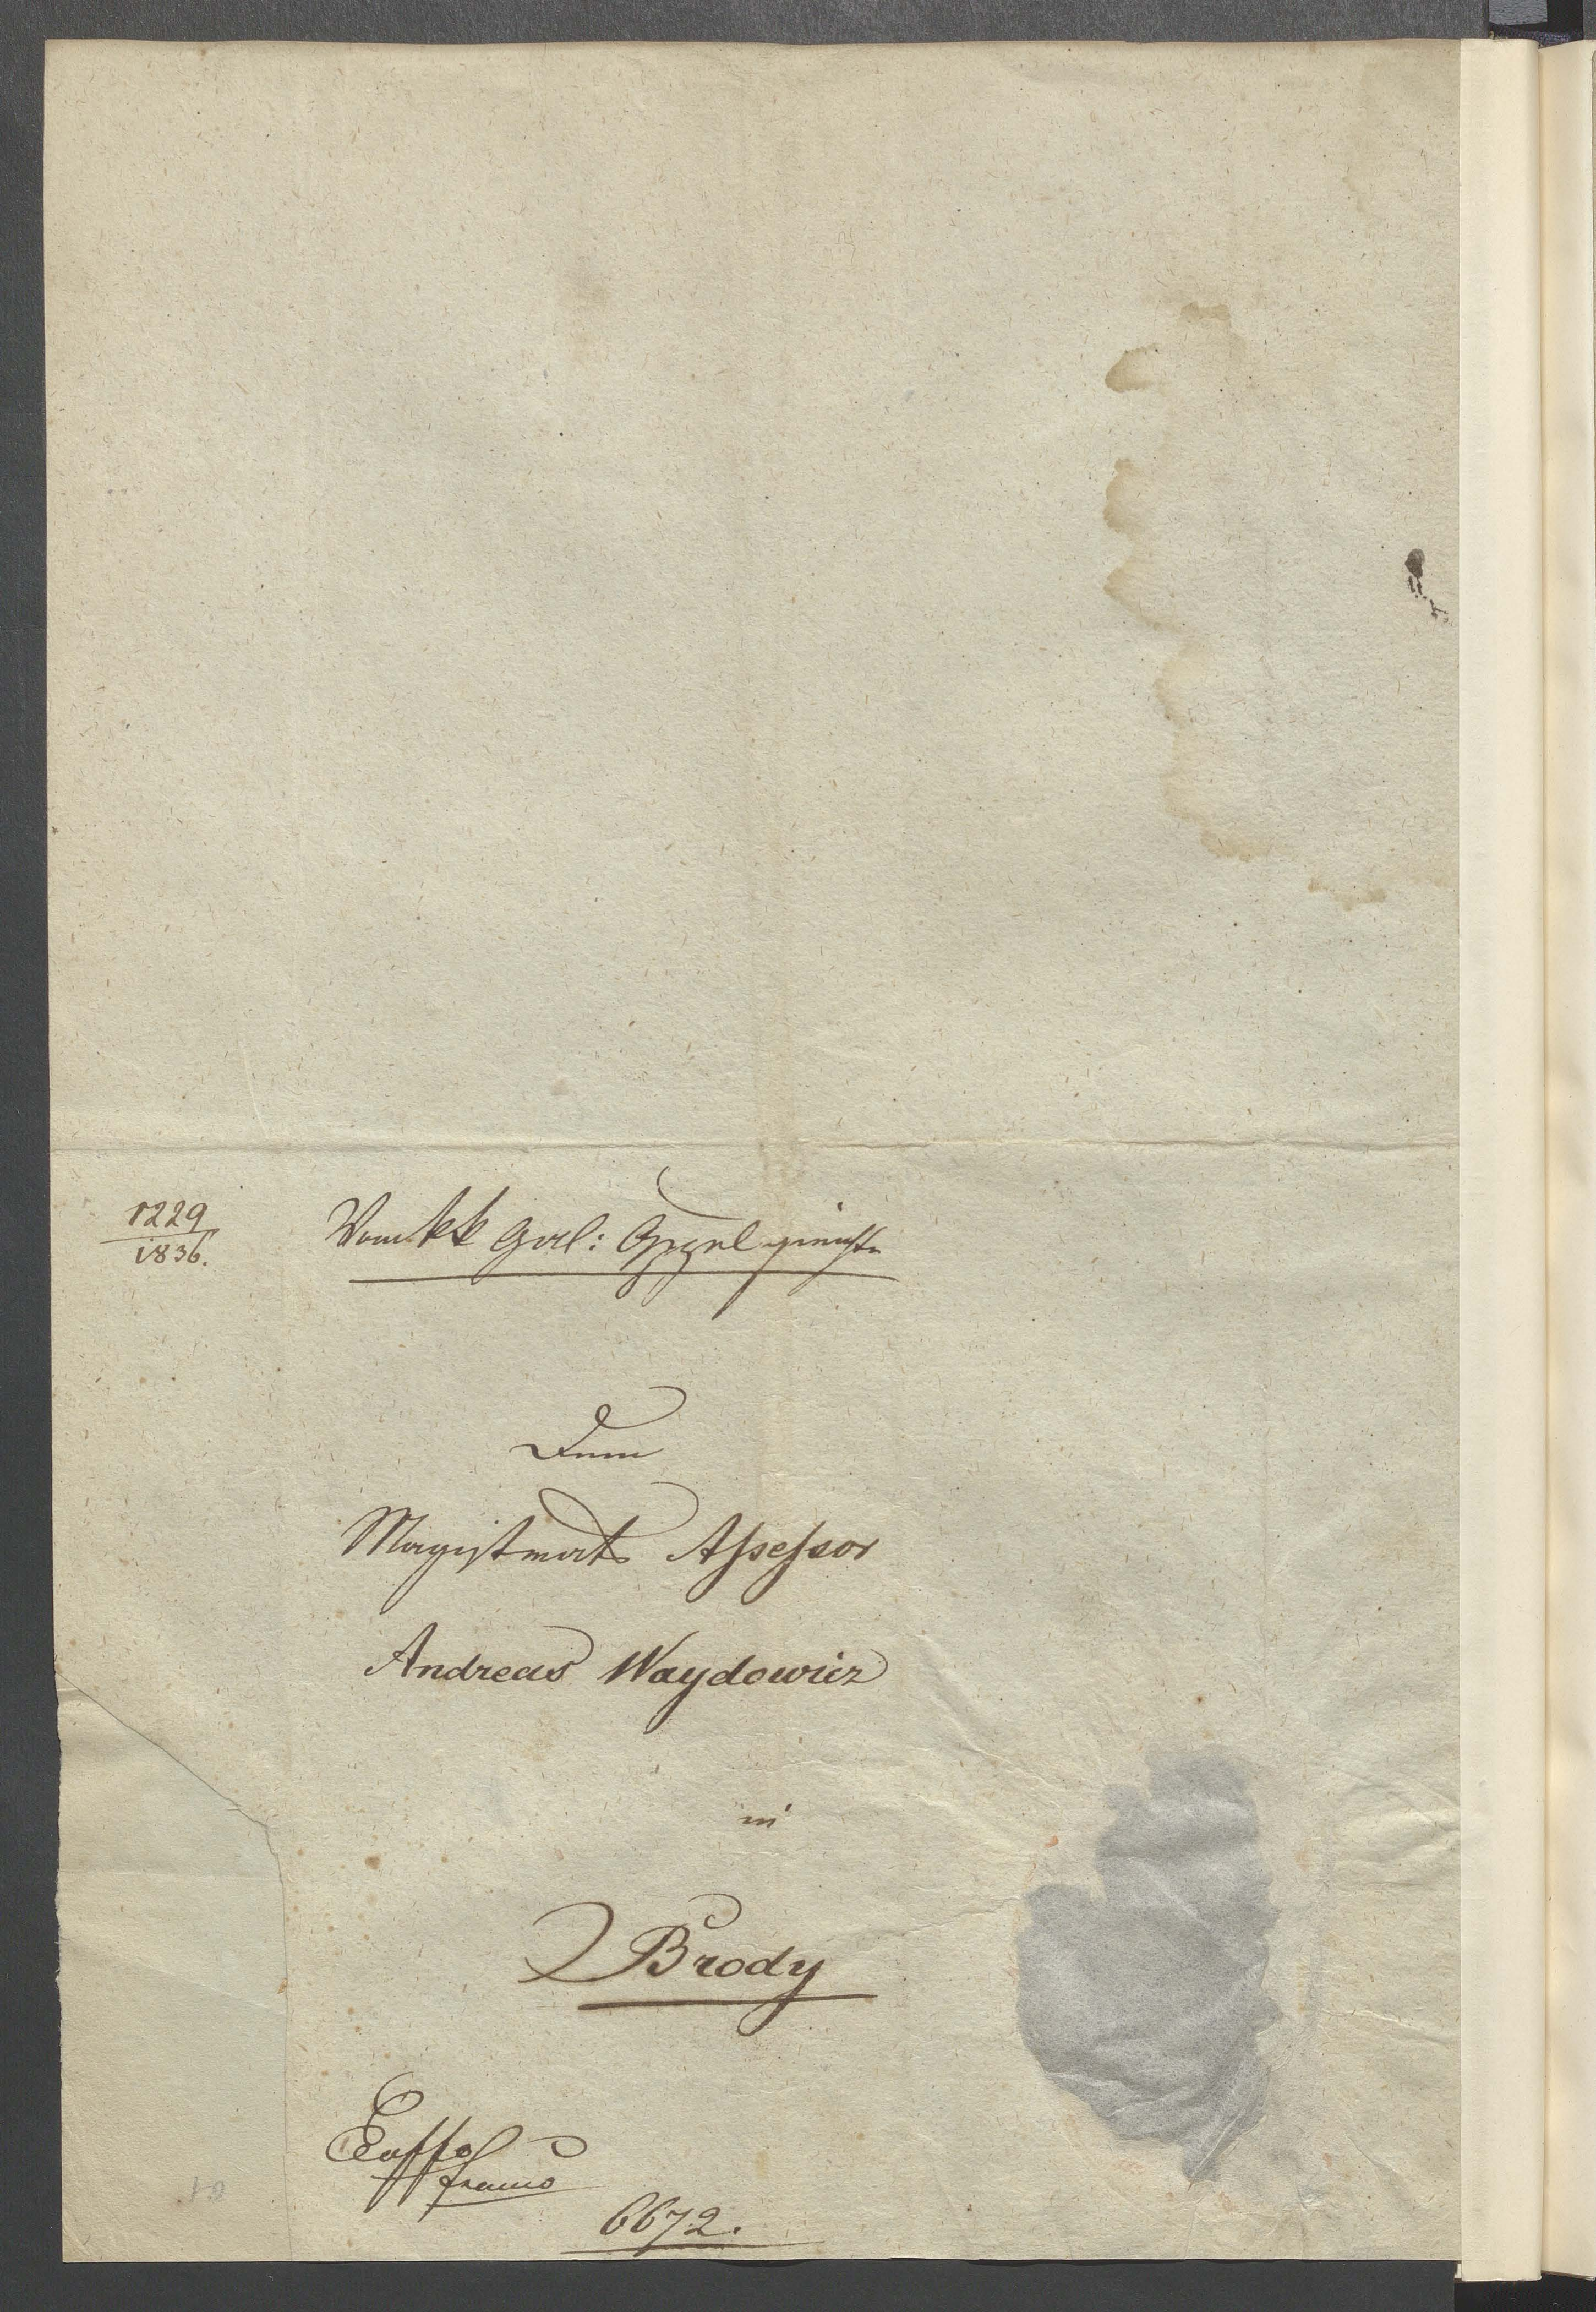 1229
1836.
Vom kk gal: Appelgerichte
Dem
Magistrats Assessor
Andreas Waydowicz
in
Brody
Ex offo
franco
6672.